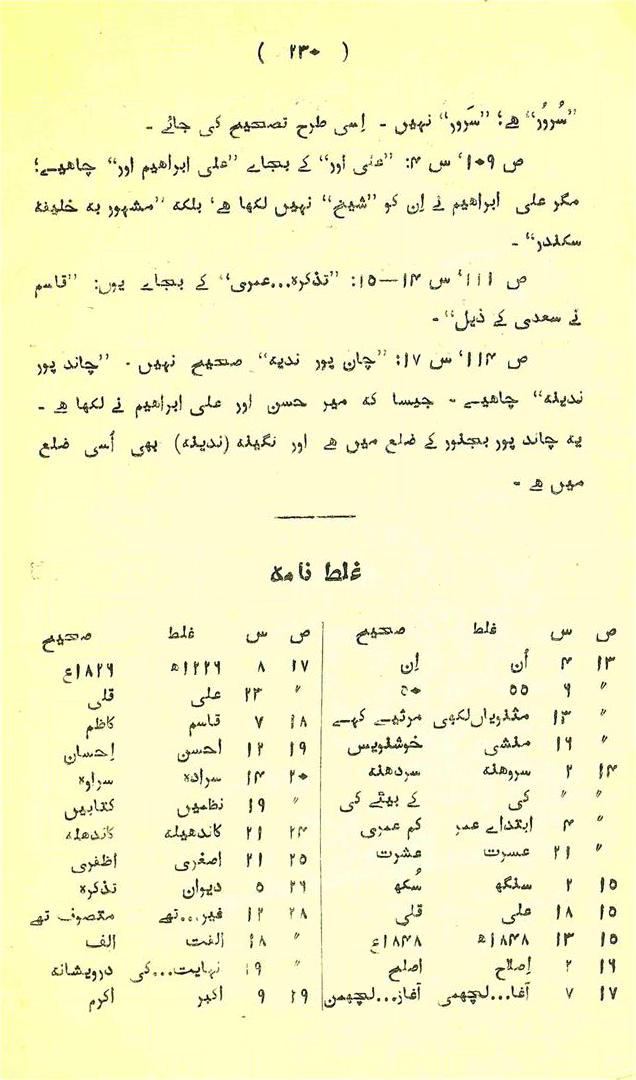 ( ۲۳۰ )
”سُرُور“ ھے؛ ”سَرور“ نہیں - اِسی طرح تصحیح کی جائے -
ص ۱۰۹، س ۴: ”علی اور“ کے بجاے ”علی ابراھیم اور“ چاھیے؛
مگر علی ابراھیم نے اِن کو ”شیخ“ نہیں لکھا ھے، بلکہ ”مشہور بہ خلیفہ
سکندر“ -
ص ۱۱۱، س ۱۴—۱۵: ”تذکرہ...عمری“ کے بجاے یوں: ”قاسم
نے سعدی کے ذیل“ -
ص ۱۱۴، س ۱۷: ”چان پور ندیہ“ صحیح نہیں - ”چاند پور
ندینہ“ چاھیے - جیسا کہ میر حسن اور علی ابراھیم نے لکھا ھے -
یہ چاند پور بجنور کے ضلع میں ھے اور نگینہ (ندینہ) بھی اُسی ضلع
میں ھے -
غلط نامہ
ص س غلط صحیح
۱۳ ۴ اُن اِن
” ۶ ۵۵ ۵۰
” ۱۳ مثنویاں لکھی مرثیے کہے
” ۱۶ منشی خوشنویس
۱۴ ۲ سروھنہ سردھنہ
” ” کی کے بیٹے کی
” ۴ ابتداے عمر کم عمری
” ۲۱ عسرت عشرت
۱۵ ۲ سنگھ سُکھ
۱۵ ۱۸ علی قلی
۱۵ ۱۳ ۱۸۴۸ھ ۱۸۴۸ع
۱۶ ۲ اِصلاح اصلح
۱۷ ۷ آغا...لچھمی آغاز...لچھمن
ص س غلط صحیح
۱۷ ۸ ۱۲۲۶ھ ۱۸۲۶ع
” ۲۳ علی قلی
۱۸ ۷ قاسم کاظم
۱۹ ۱۲ احسن اِحسان
۲۰ ۱۴ سرادہ سراوہ
” ۱۹ نظمیں کتابیں
۲۴ ۲۱ کاندھیلہ کاندھلہ
۲۵ ۲۱ اصغری اظفری
۲۶ ۵ دیوان تذکرہ
۲۸ ۱۲ فیر...تھے متصوف تھے
” ۱۸ الفت الف
” ۱۹ نہایت...کی درویشانہ
۲۹ ۹ اکبر اکرم